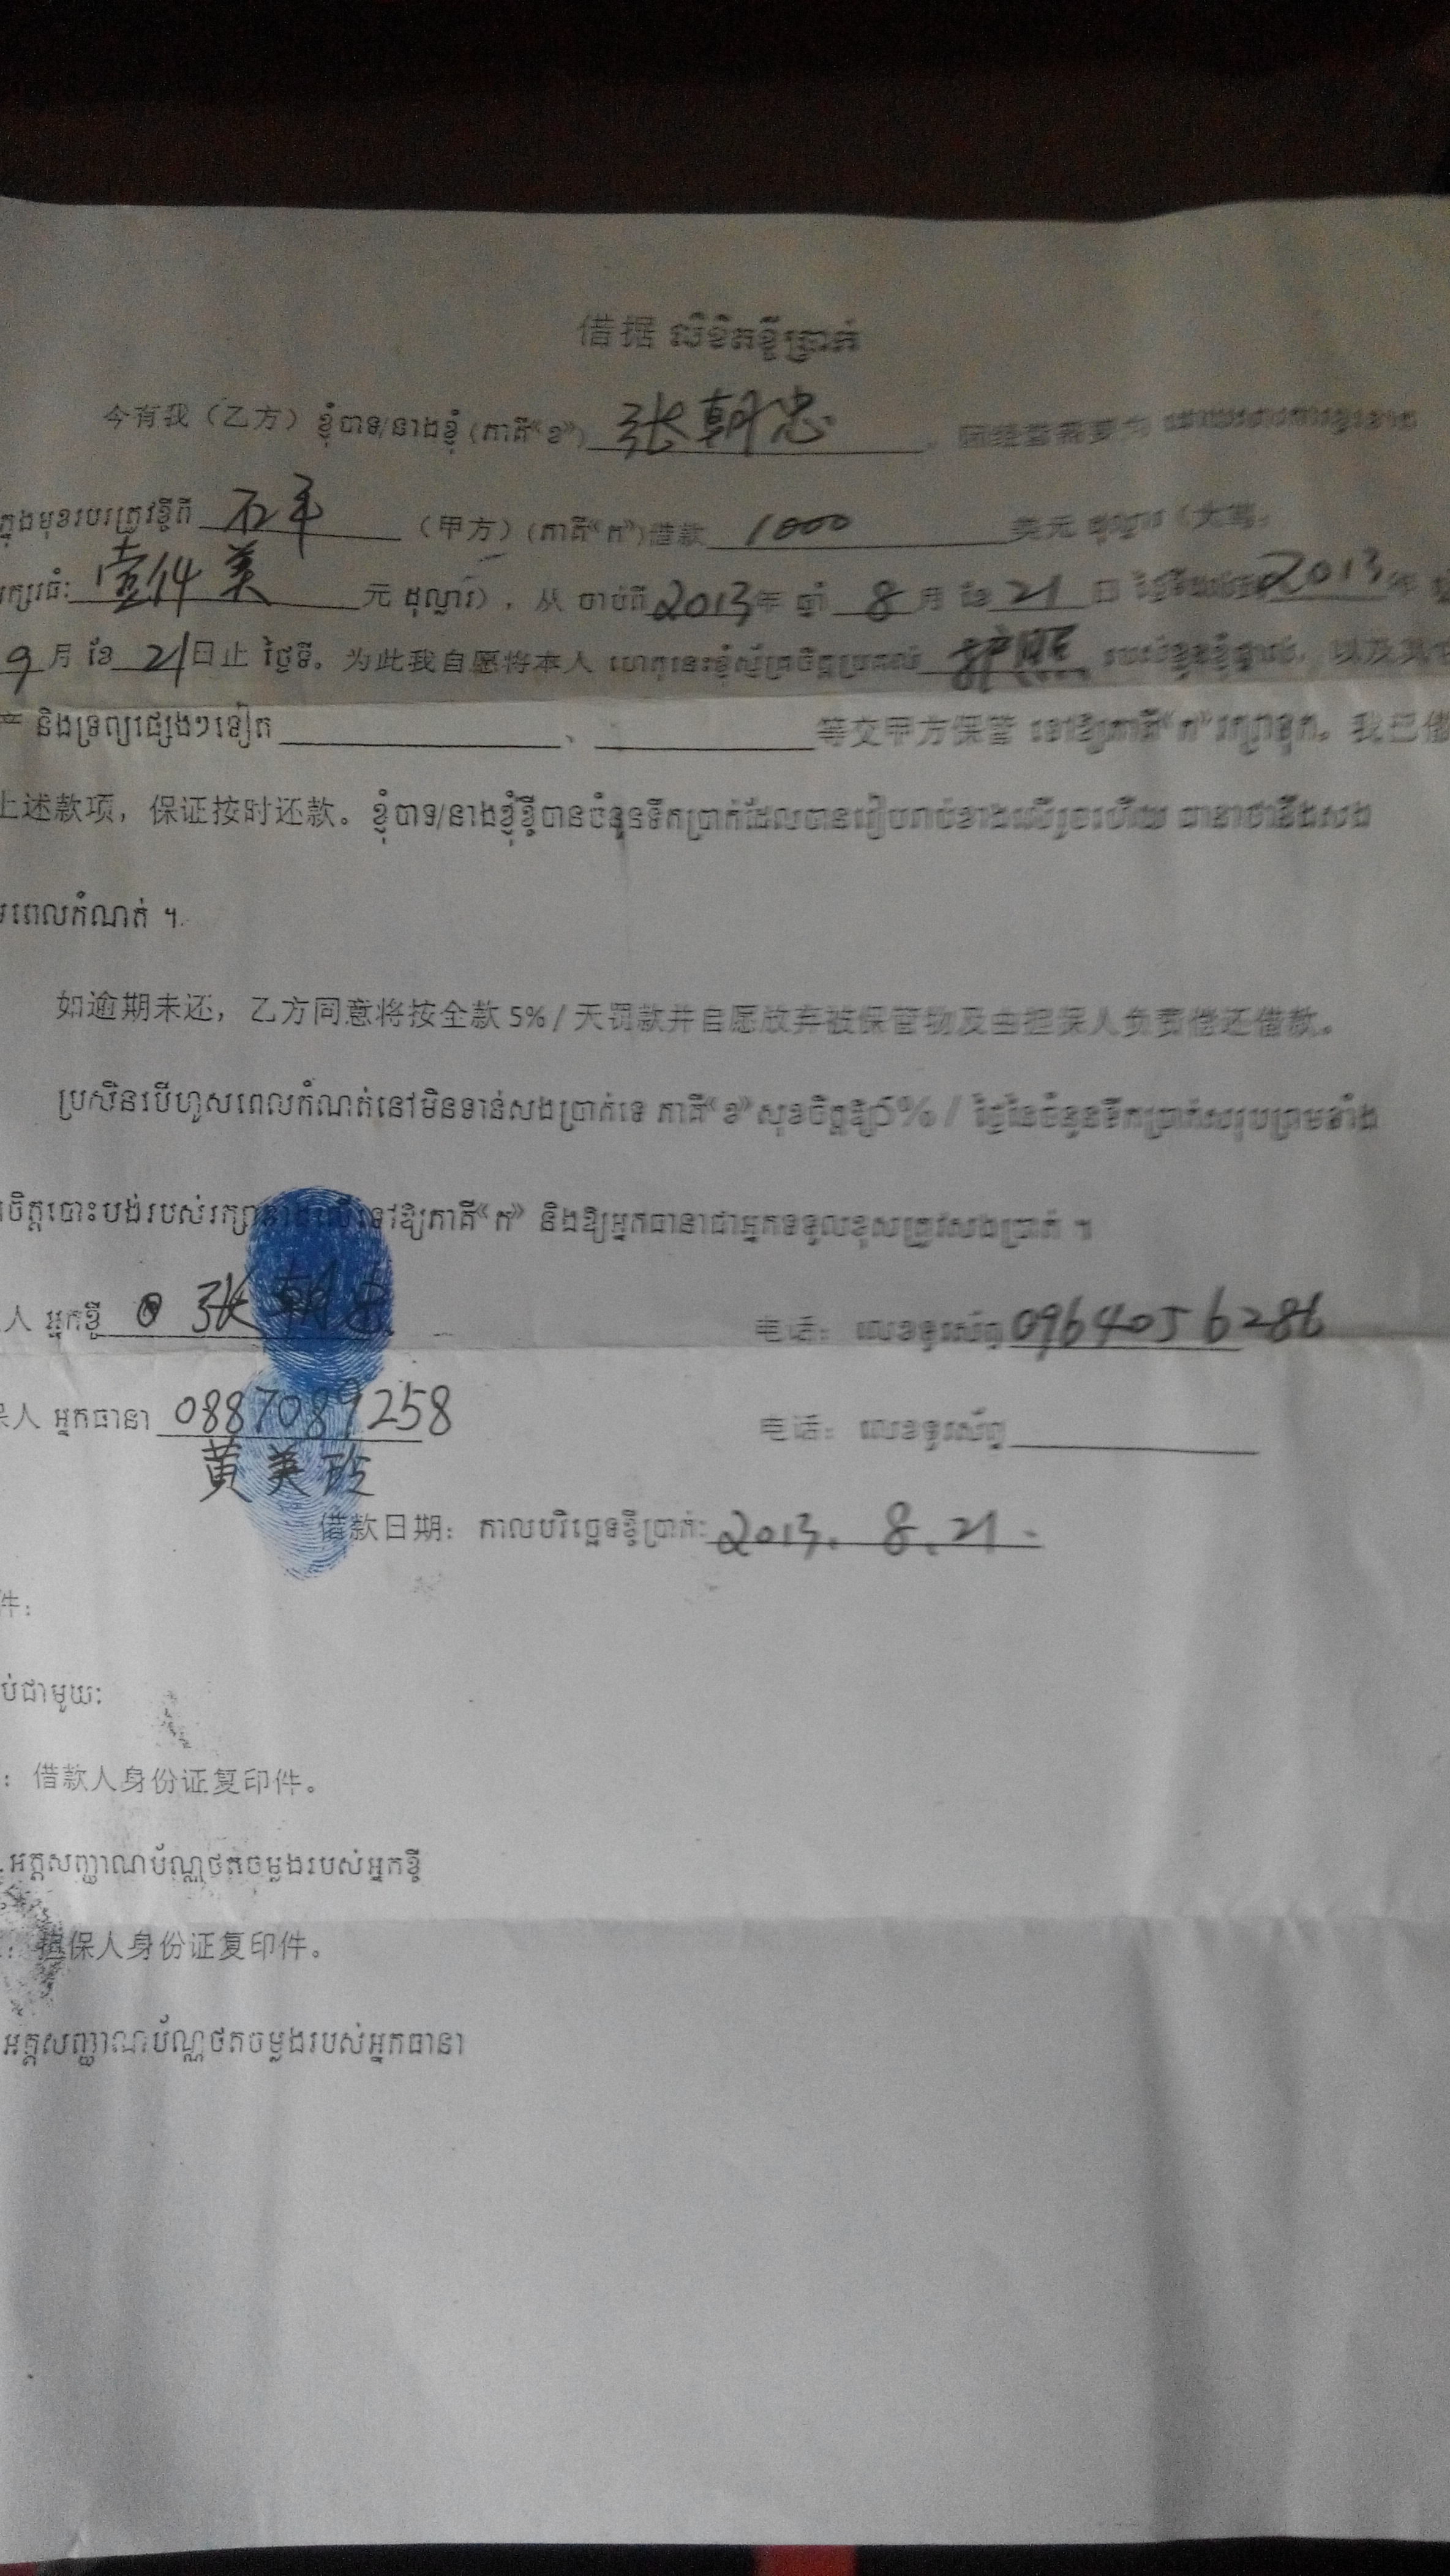 借据 លិខិតខ្ចីប្រាក់
今有我（乙方）ខ្ញុំបាទ/នាងខ្ញុំ (ភាគី“ខ”) 张朝忠 , 因经营需要向
ក្នុងមុខរបរត្រូវខ្ចីពី 石平 （甲方）(ភាគី“ក”)借款 1000 美元 ដុល្លារ（大写:
ក្សរធំ: 壹仟美 元 ដុល្លារ）, 从 ចាប់ពី 2013 年 ឆ្នាំ 8 月 ខែ 21 日 2013 年
9 月 ខែ 21 日止 ថ្ងៃទី. 为此我自愿将本人 ហេតុនេះខ្ញុំស្ម័គ្រចិត្តប្រគល់ 护照 របស់ខ្លួនខ្ញុំផ្ទាល់, 以及其它
产 និងទ្រព្យផ្សេងៗទៀត 、 等交甲方保管 ទៅឱ្យភាគី“ក”រក្សាទុក. 我已借
上述款项, 保证按时还款. ខ្ញុំបាទ/នាងខ្ញុំខ្ចីបានចំនួនទឹកប្រាក់ដែលបានរៀបរាប់ខាងលើរួចហើយ ធានាថានឹងសង
ពេលកំណត់ ។
如逾期未还, 乙方同意将按全款 5% / 天罚款并自愿放弃被保管物及由担保人负责偿还借款.
ប្រសិនបើហួសពេលកំណត់នៅមិនទាន់សងប្រាក់ទេ ភាគី“ខ”សុខចិត្តឱ្យ5% / ថ្ងៃនៃចំនួនទឹកប្រាក់សរុបព្រមទាំង
ចិត្តបោះបង់របស់រក្សាខាងលើទៅឱ្យភាគី“ក” និងឱ្យអ្នកធានាជាអ្នកទទួលខុសត្រូវសងប្រាក់ ។
人 អ្នកខ្ចី 张朝忠 电话: លេខទូរស័ព្ទ 0964056286
保人 អ្នកធានា 0887089257 8 电话: លេខទូរស័ព្ទ
黄美
借款日期: កាលបរិច្ឆេទខ្ចីប្រាក់: 2013. 8. 21.
件:
ប់ជាមួយ:
: 借款人身份证复印件.
អត្តសញ្ញាណប័ណ្ណថតចម្លងរបស់អ្នកខ្ចី
: 担保人身份证复印件.
អត្តសញ្ញាណប័ណ្ណថតចម្លងរបស់អ្នកធានា